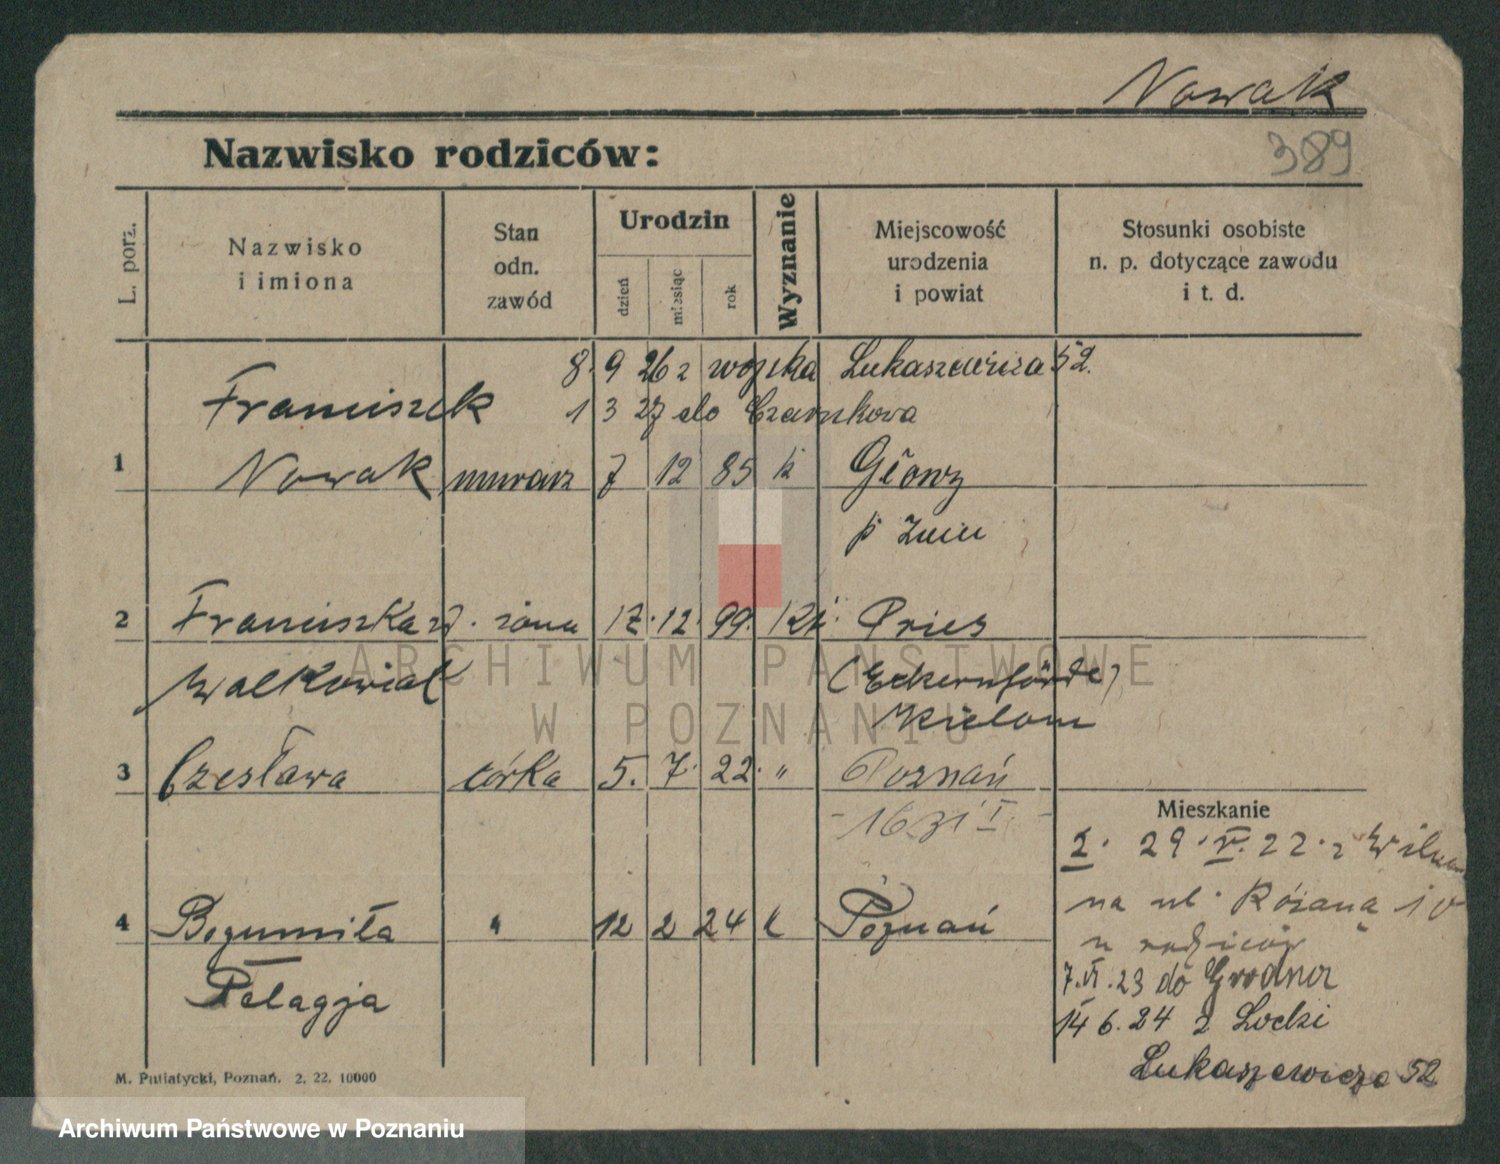 Nowak
Nazwisko rodziców:
389
L. porz.
Nazwisko
i imiona
Stan
odn.
zawód
Urodzin
dzień
miesiąc
rok
Wyznanie
Miejscowość
urodzenia
i powiat
Stosunki osobiste
n. p. dotyczące zawodu
i t. d.
8. 9 26 z wojska Łukaszewicza 52.
Franciszek 1 3 27 do Czarnkowa
1 Nowak murarz 7 12 85 k
p Żnin
2 Franciszka z d. żona 17. 12. 99. Rk. Pries
Walkowiak (Eckernförde)
3 Czesława córka 5. 7. 22. " Poznań
Mieszkanie
29. V. 22. z Wilna
na ul. Różana 10
u rodziców
4 Bogumiła " 12 2 24 k Poznań
7. VI. 23 do Grodna
Pelagja
14 6. 24 z Łodzi
Łukaszewicza 52
M. Putiatycki, Poznań. 2. 22. 10000
ARCHIWUM PAŃSTWOWE
W POZNANIU
Archiwum Państwowe w Poznaniu